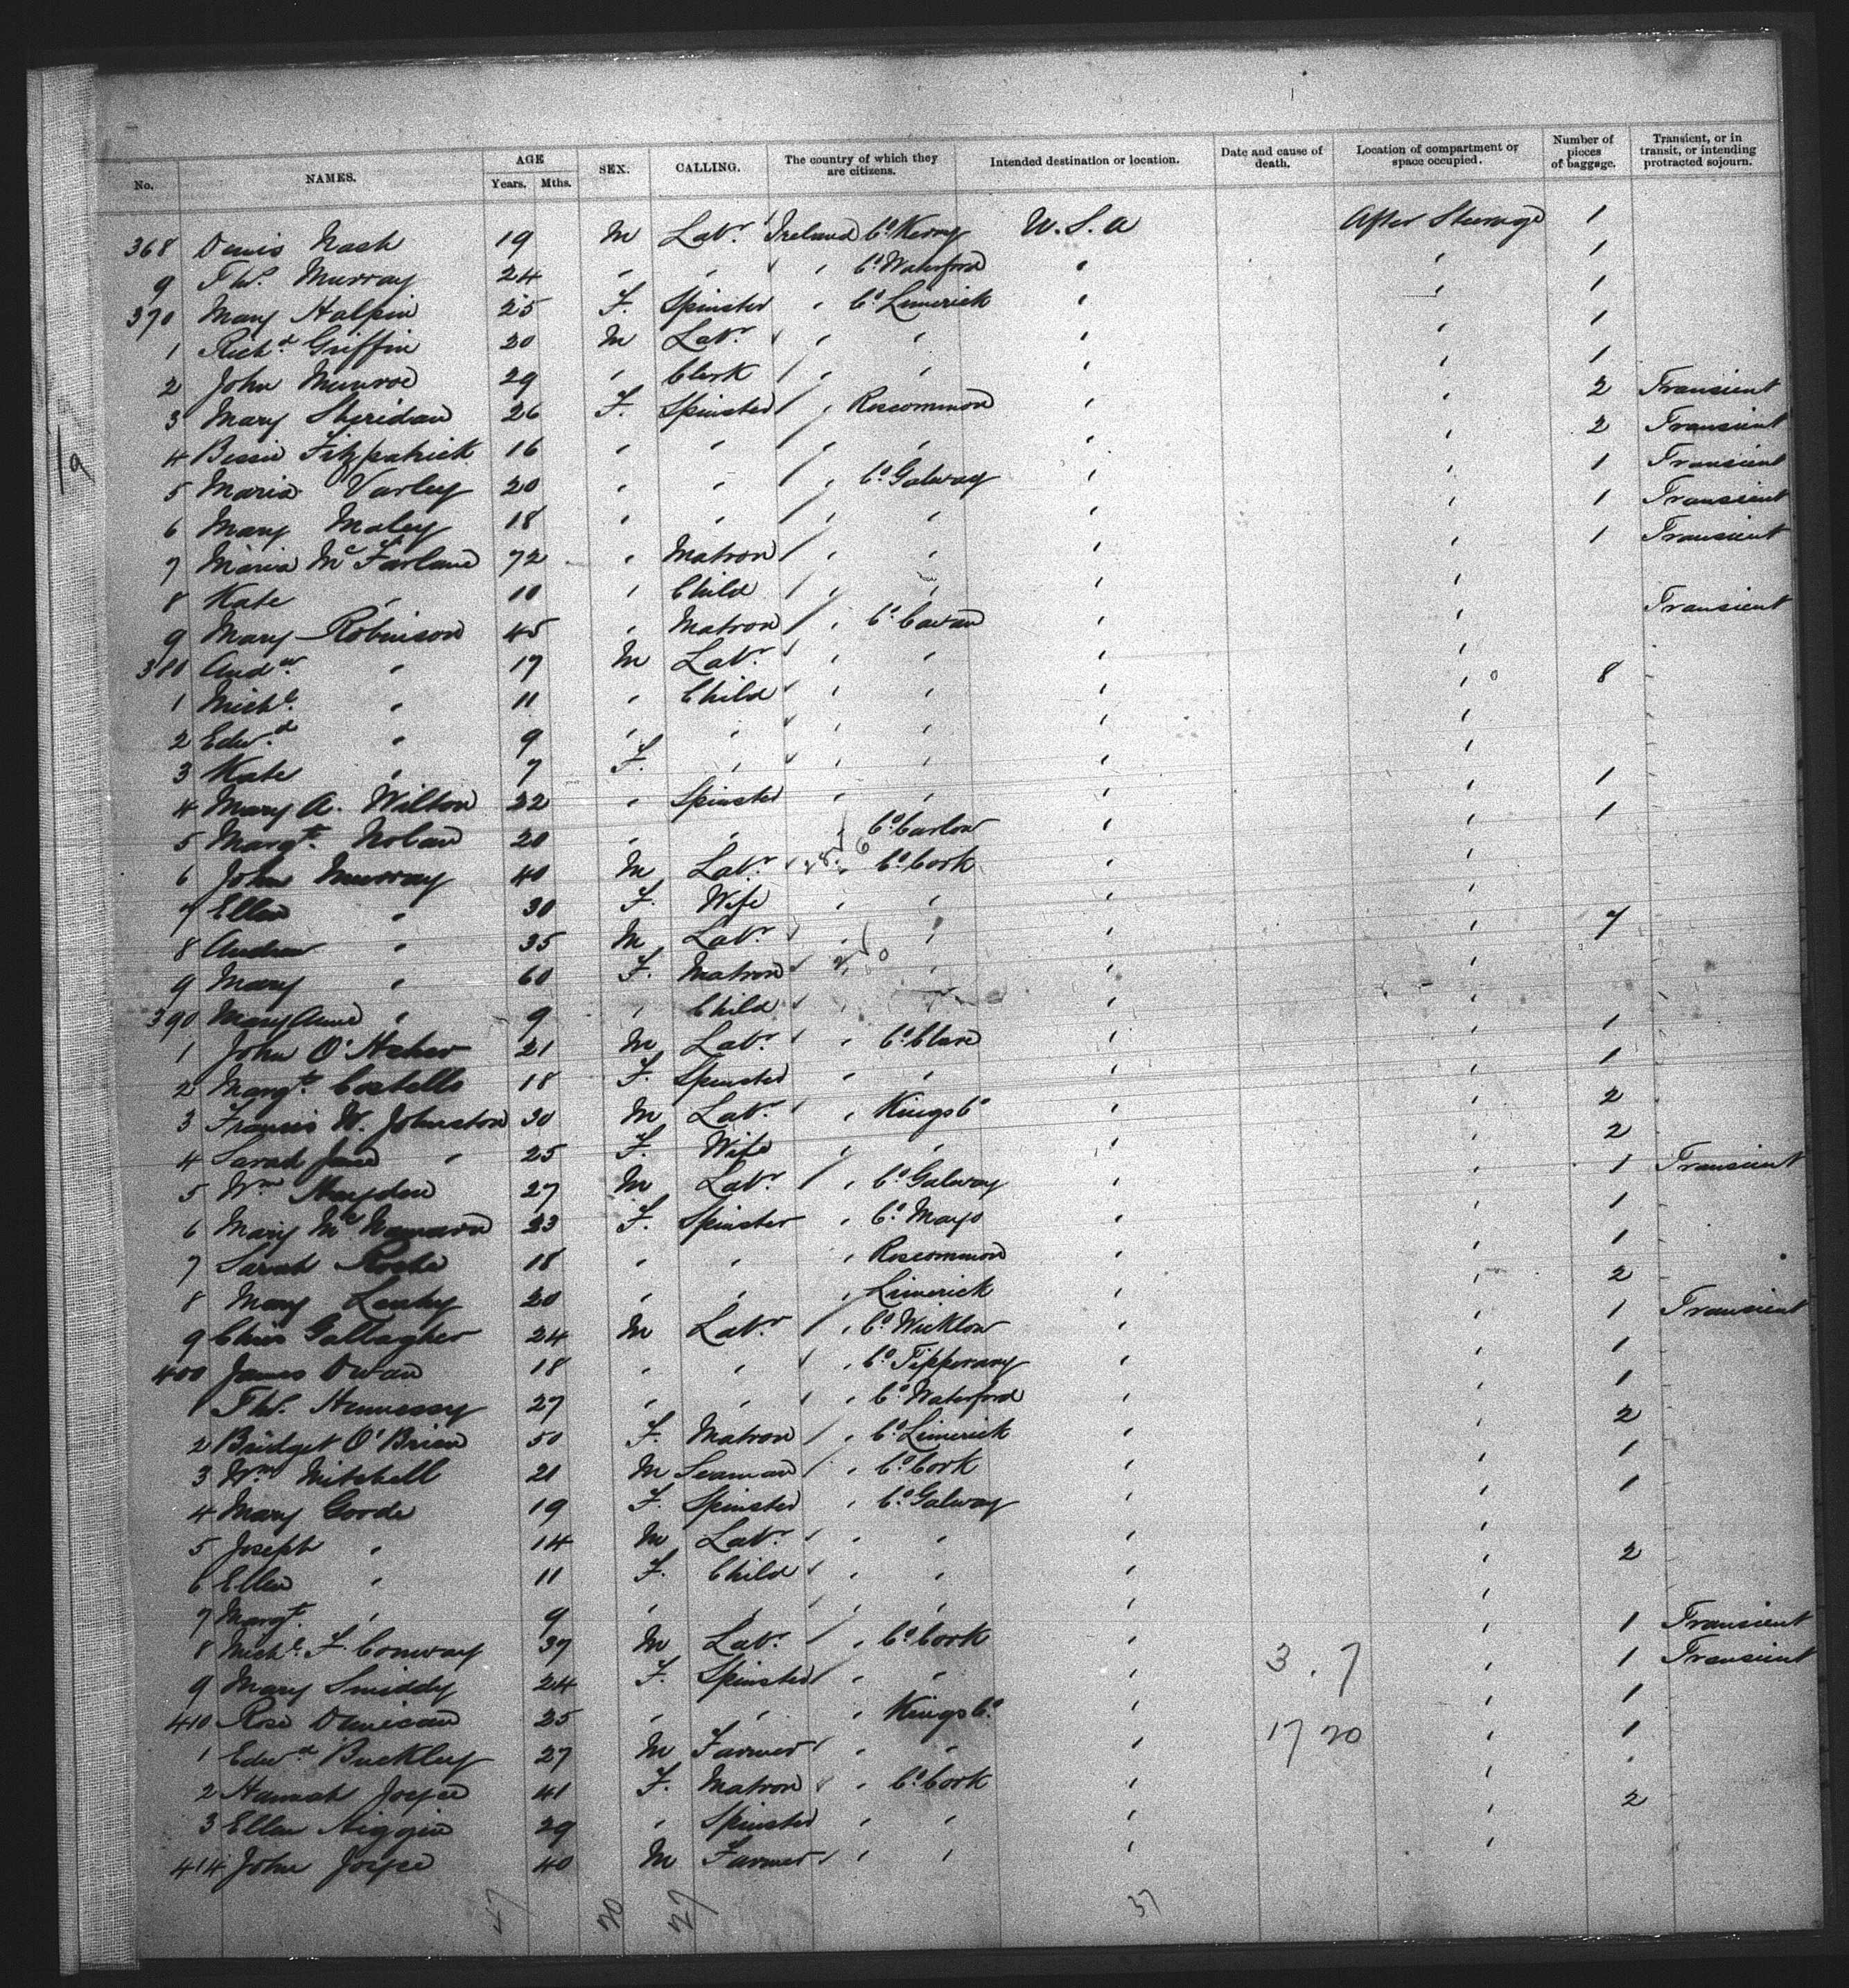 No. NAMES. AGE Years. Mths. SEX. CALLING. The country of which they are citizens. Intended destination or location. Date and cause of death. Location of compartment or space occupied. Number of pieces of baggage. Transient, or in transit, or intending protracted sojourn.
19
368 Denis Nash 19 M Labr. Ireland Co. Kerry U.S.A After Steerage 1
9 Thos. Murray 24 " " " Co. Waterford " " 1
370 Mary Halpin 25 F. Spinster " Co. Limerick " " 1
1 Richd. Griffin 20 M Labr. " " " " 1
2 John Munroe 29 " Clerk " " " " 1
3 Mary Sheridan 26 F. Spinster " Roscommon " " 2 Transient
4 Bessie Fitzpatrick 16 " " " " " " 2 Transient
5 Maria Varley 20 " " " Co. Galway " " 1 Transient
6 Mary Maley 18 " " " " " " 1 Transient
7 Maria McFarland 72 " Matron " " " " 1 Transient
8 Kate " 10 " Child " " " "
9 Mary Robinson 45 " Matron " Co. Cavan " " Transient
380 Andw. " 17 M Labr. " " " "
1 Michl. " 11 " Child " " " " 8
2 Edwd. " 9 " " " " " "
3 Kate " 7 F. " " " " "
4 Mary A. Wilton 22 " Spinster " " " " 1
5 Margt. Nolan 20 " " " Co. Carlow " " 1
6 John Murray 40 M Labr. " Co. Cork " "
7 Ellen " 30 F. Wife " " " "
8 Andrew " 35 M Labr. " " " " 7
9 Mary " 60 F. Matron " " " "
390 Mary Anne " 9 " Child " " " "
1 John O'Heher 21 M Labr. " Co. Clare " " 1
2 Margt. Costello 18 F. Spinster " " " " 1
3 Francis W. Johnston 30 M Labr. " Kings Co. " " 2
4 Sarah Jane " 25 F. Wife " " " " 2
5 Wm Hayden 27 M Labr. " Co. Galway " " 1 Transient
6 Mary McNamara 23 F. Spinster " Co. Mayo " " 1
7 Sarah Roche 18 " " " Roscommon " " 1
8 Mary Leahy 20 " " " Limerick " " 2
9 Chris Gallagher 24 M Labr. " Co. Wicklow " " 1 Transient
400 James Dwan 18 " " " Co. Tipperary " " 1
1 Thos. Hennessy 27 " " " Co. Waterford " " 1
2 Bridget O'Brien 50 F. Matron " Co. Limerick " " 2
3 Wm Mitchell 21 M Seaman " Co. Cork " " 1
4 Mary Goode 19 F. Spinster " Co. Galway " " 1
5 Joseph " 14 M Labr. " " " "
6 Ellen " 11 F. Child " " " " 2
7 Margt. " 9 " " " " " "
8 Michl. F. Conway 37 M Labr. " Co. Cork " " 1 Transient
9 Mary Smiddy 24 F. Spinster " " " 3.7 " 1 Transient
410 Rose Dunican 25 " " " Kings Co. " " 1
1 Edwd Buckley 27 M Farmer " " " 17 20 " 1
2 Hannah Joyce 41 F. Matron " Co. Cork " "
3 Ellen Higgin 29 " Spinster " " " " 2
414 John Joyce 40 M Farmer " " " "
47 20 27 37